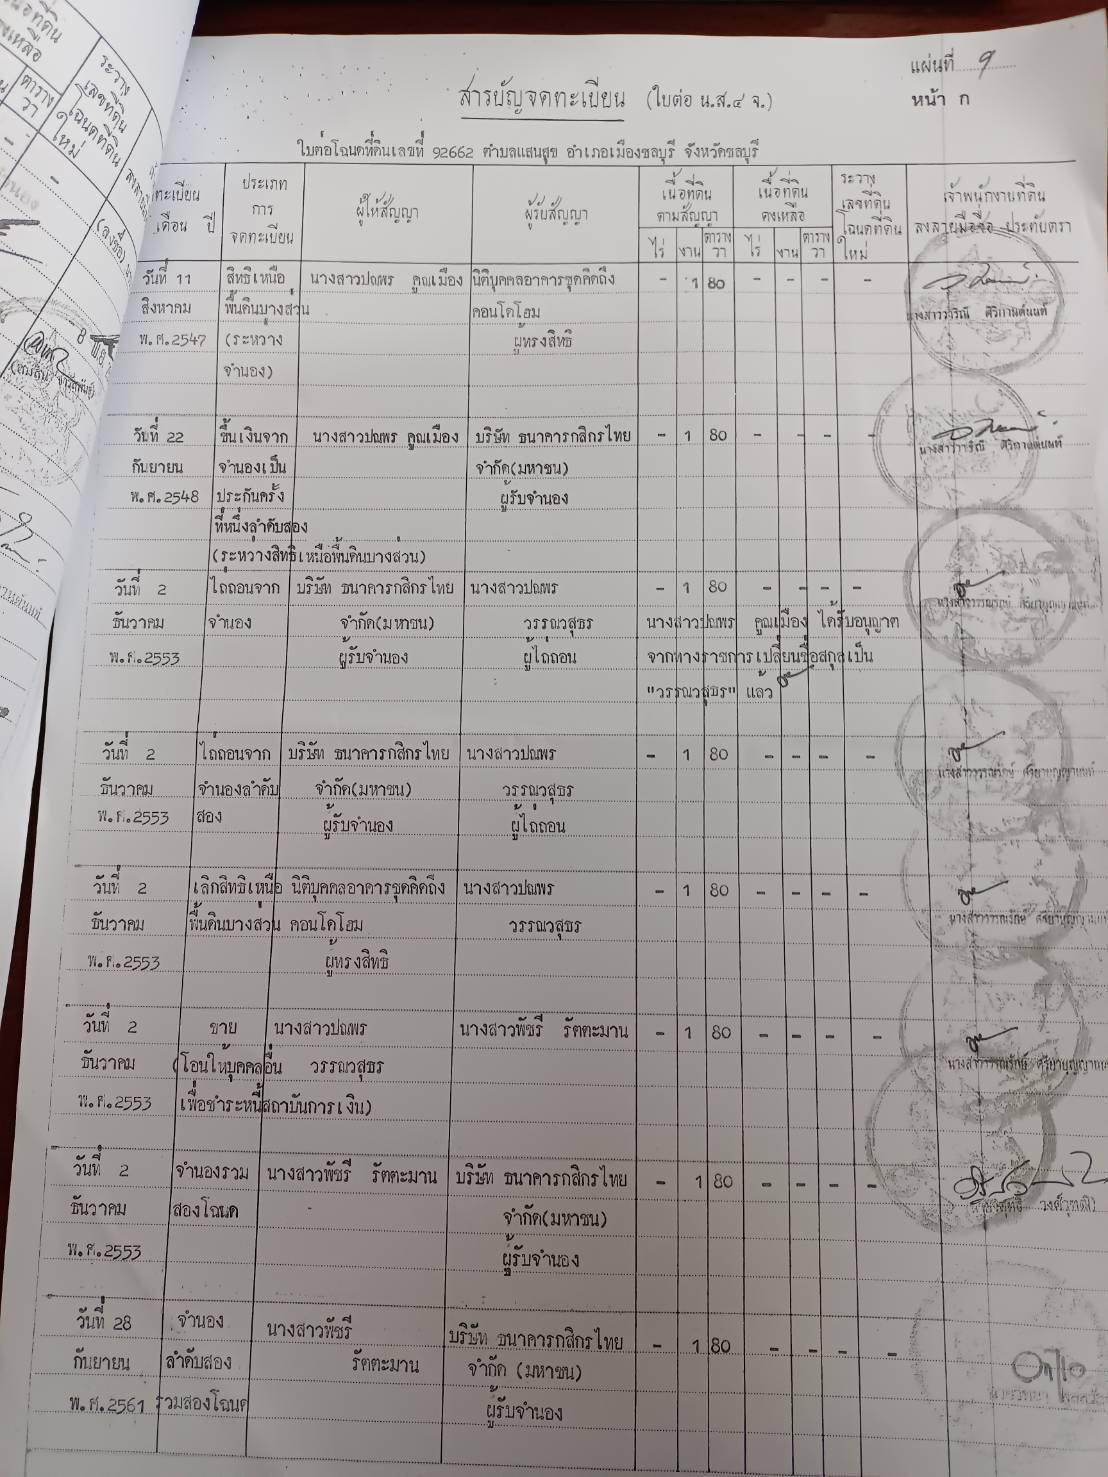 แผ่นที่ 9
สารบัญจดทะเบียน (ใบต่อ น.ส.๔ จ.)
หน้า ก
ใบต่อโฉนดที่ดินเลขที่ 92662 ตำบลแสนสุข อำเภอเมืองชลบุรี จังหวัดชลบุรี
ทะเบียน ประเภท ผู้ให้สัญญา ผู้รับสัญญา เนื้อที่ดิน เนื้อที่ดิน ระวาง เจ้าพนักงานที่ดิน
เดือน ปี การ ตามสัญญา คงเหลือ เลขที่ดิน ลงลายมือชื่อ ประทับตรา
จดทะเบียน ไร่ งาน ตารางวา ไร่ งาน ตารางวา โฉนดที่ดิน
ใหม่
วันที่ 11 สิทธิเหนือ นางสาวปณพร คูณเมือง นิติบุคคลอาคารชุดคิดถึง - 1 80 - - - -
สิงหาคม พื้นดินบางส่วน คอนโดโฮม
พ.ศ.2547 (ระหว่าง ผู้ทรงสิทธิ
จำนอง)
วันที่ 22 ขึ้นเงินจาก นางสาวปณพร คูณเมือง บริษัท ธนาคารกสิกรไทย - 1 80 - - - -
กันยายน จำนองเป็น จำกัด(มหาชน)
พ.ศ.2548 ประกันครั้ง ผู้รับจำนอง
ที่หนึ่งลำดับสอง
(ระหว่างสิทธิเหนือพื้นดินบางส่วน)
วันที่ 2 ไถ่ถอนจาก บริษัท ธนาคารกสิกรไทย นางสาวปณพร - 1 80 - - - -
ธันวาคม จำนอง จำกัด(มหาชน) วรรณวสุธร นางสาวปณพร คูณเมือง ได้รับอนุญาต
พ.ศ.2553 ผู้รับจำนอง ผู้ไถ่ถอน จากทางราชการเปลี่ยนชื่อสกุลเป็น
"วรรณวสุธร" แล้ว
วันที่ 2 ไถ่ถอนจาก บริษัท ธนาคารกสิกรไทย นางสาวปณพร - 1 80 - - - -
ธันวาคม จำนองลำดับ จำกัด(มหาชน) วรรณวสุธร
พ.ศ.2553 สอง ผู้รับจำนอง ผู้ไถ่ถอน
วันที่ 2 เลิกสิทธิเหนือ นิติบุคคลอาคารชุดคิดถึง นางสาวปณพร - 1 80 - - - -
ธันวาคม พื้นดินบางส่วน คอนโดโฮม วรรณวสุธร
พ.ศ.2553 ผู้ทรงสิทธิ
วันที่ 2 ขาย นางสาวปณพร นางสาวพัชรี รัตตะมาน - 1 80 - - - -
ธันวาคม (โอนให้บุคคลอื่น วรรณวสุธร
พ.ศ.2553 เพื่อชำระหนี้สถาบันการเงิน)
วันที่ 2 จำนองรวม นางสาวพัชรี รัตตะมาน บริษัท ธนาคารกสิกรไทย - 1 80 - - - -
ธันวาคม สองโฉนด จำกัด(มหาชน)
พ.ศ.2553 ผู้รับจำนอง
วันที่ 28 จำนอง นางสาวพัชรี บริษัท ธนาคารกสิกรไทย - 1 80 - - - -
กันยายน ลำดับสอง รัตตะมาน จำกัด (มหาชน)
พ.ศ.2561 รวมสองโฉนด ผู้รับจำนอง